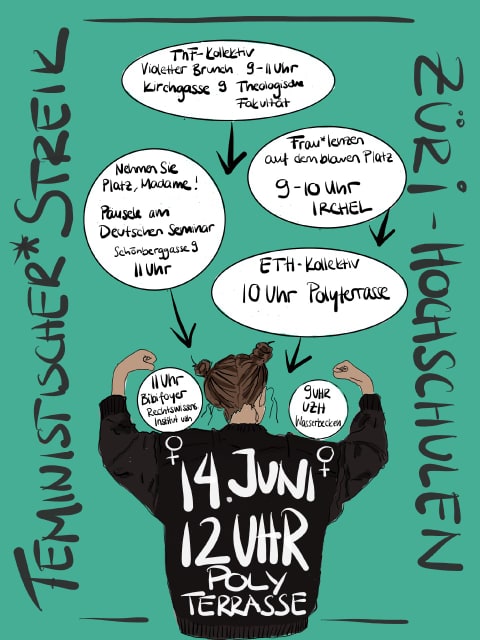 FEMINISTISCHER* STREIK
ZÜRI-HOCHSCHULEN
ThF-Kollektiv
Violetter Brunch 9-11 Uhr
Kirchgasse 9 Theologische
Fakultät
Frau*lenzen
auf dem blauen Platz
9-10 Uhr
IRCHEL
Nehmen Sie
Platz, Madame!
Päusele am
Deutschen Seminar
Schönberggasse 9
11 Uhr
ETH-Kollektiv
10 Uhr Polyterrasse
11 Uhr
Bibifoyer
Rechtswissens
Institut uzh
9 UHR
UZH
Wasserbecken
14. JUNI
12 UHR
POLY
TERRASSE